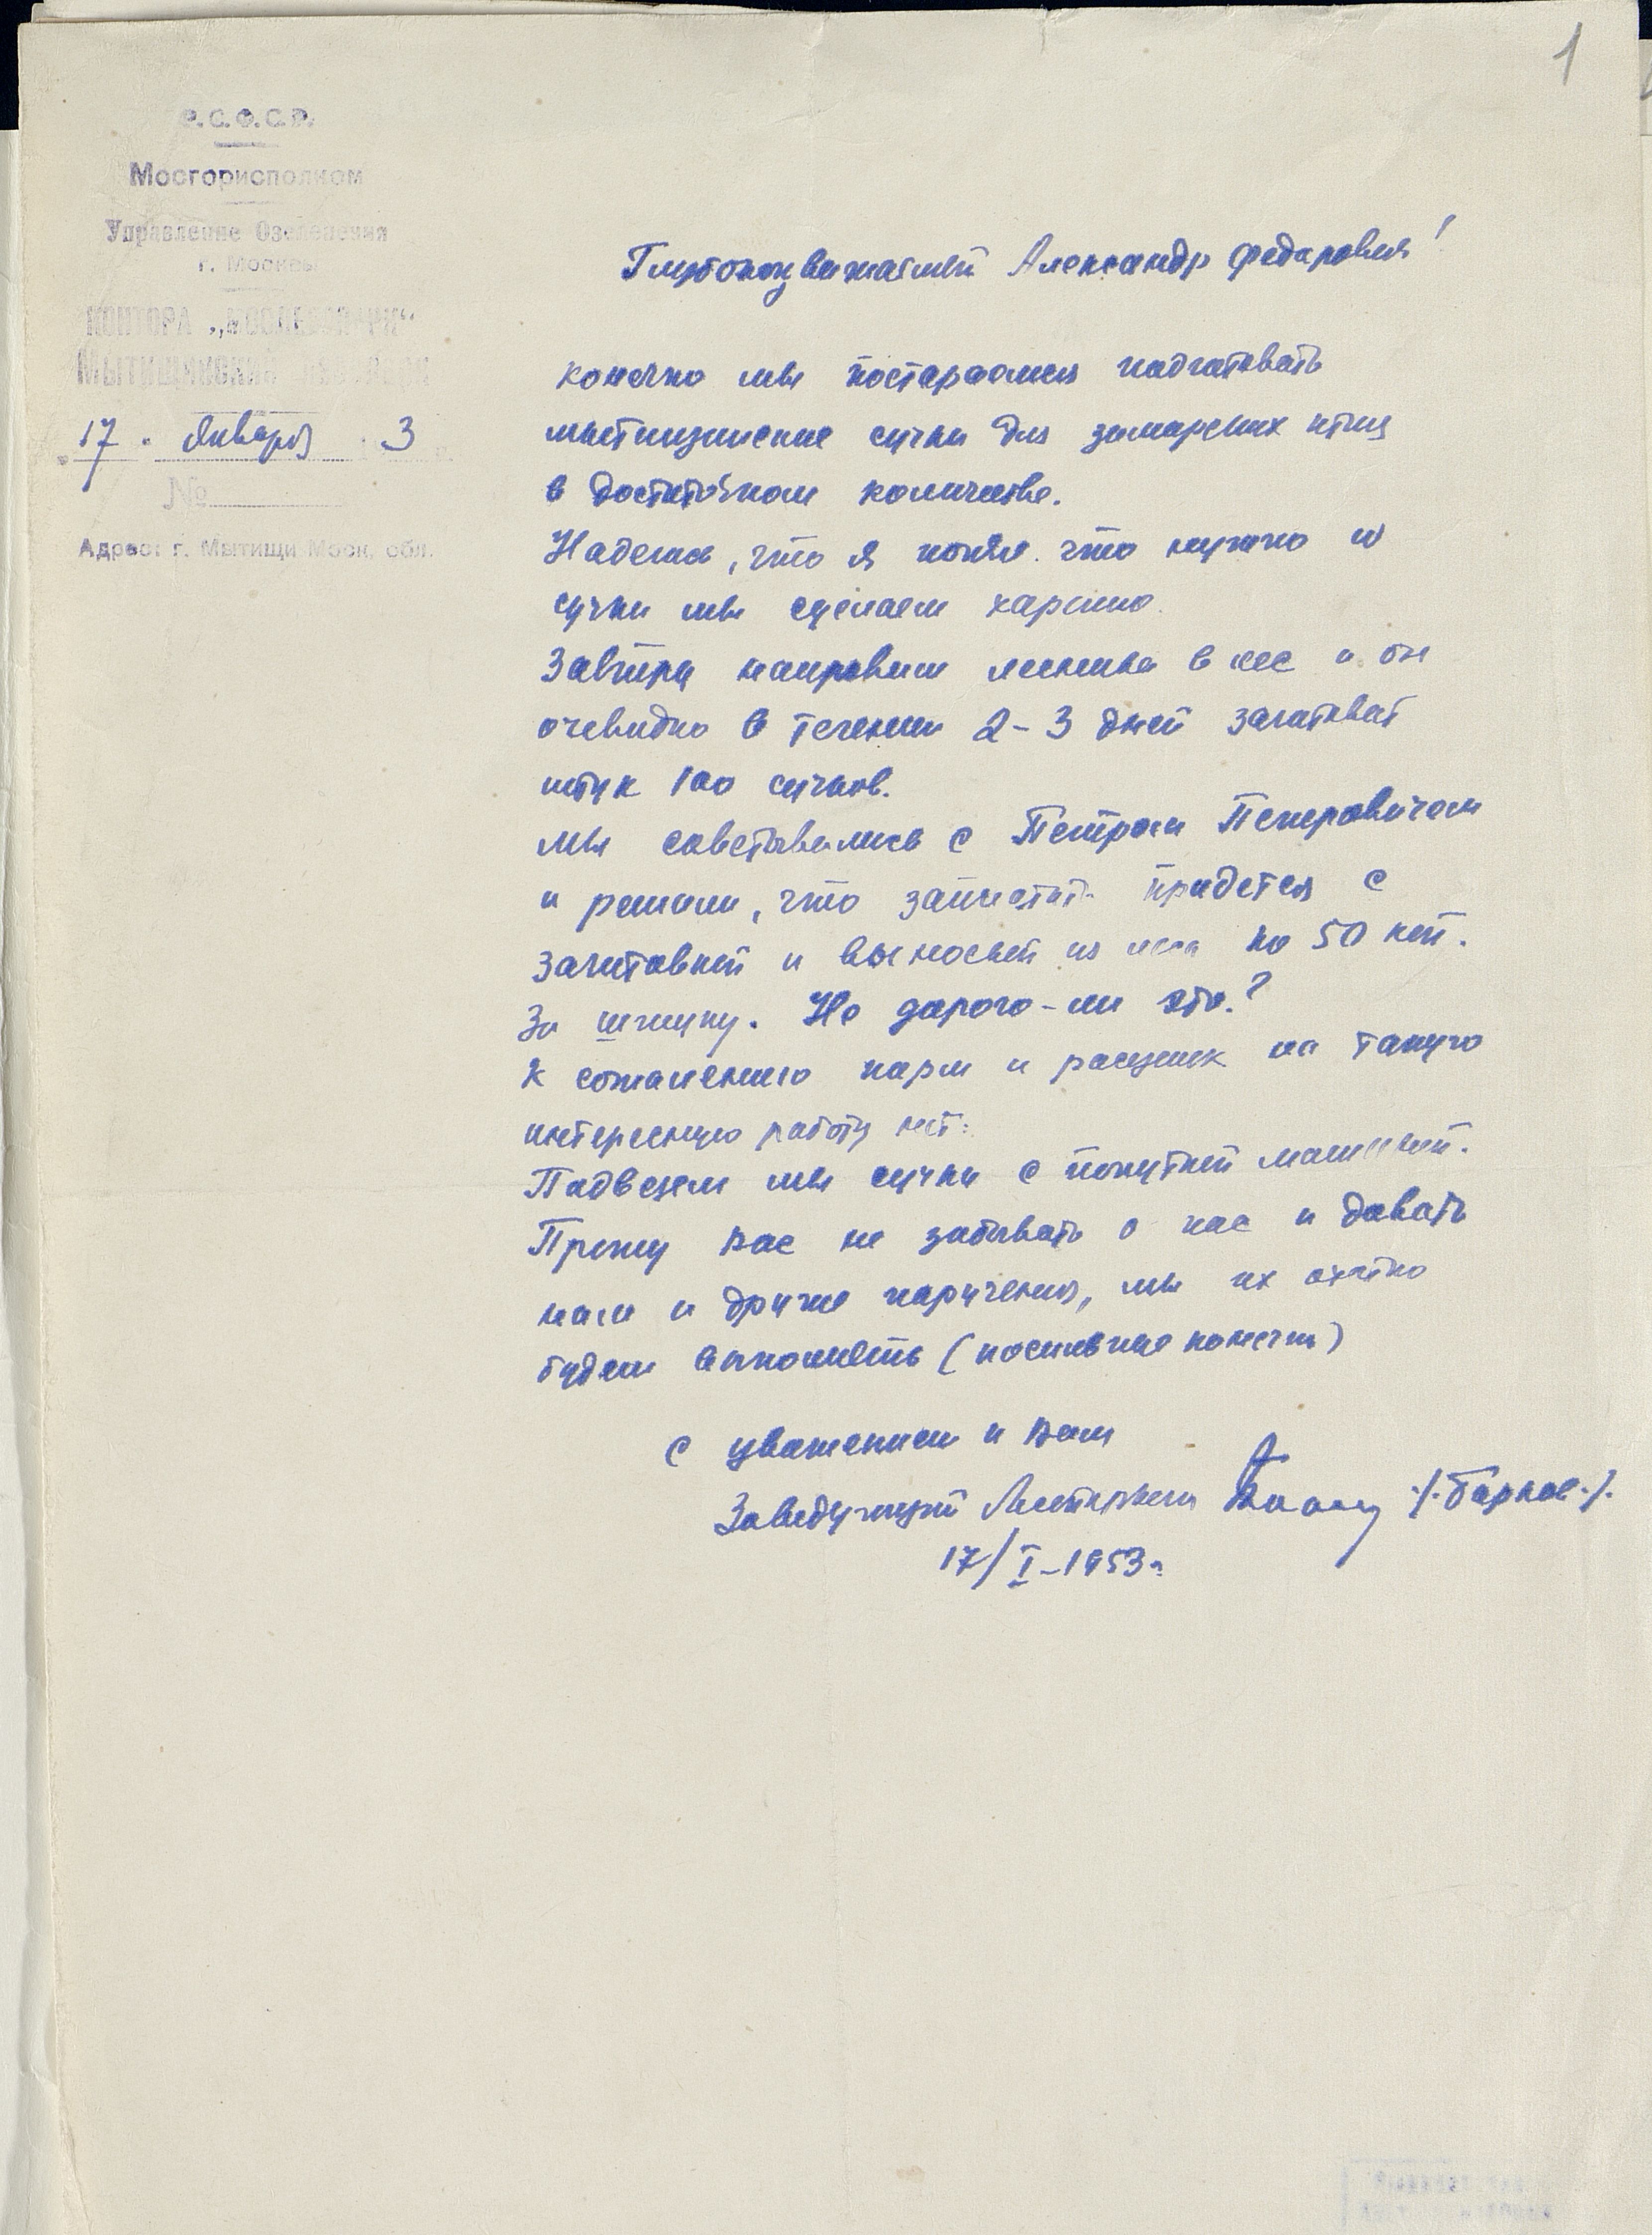 1
Р.С.Ф.С.Р.
Мосгорисполком
Управление Озеленения
г. Москвы
КОНТОРА „МОСЛЕСОПАРК“
Мытищинский лесопарк
17 января 3
№
Адрес: г. Мытищи Моск. обл.
Глубокоуважаемый Александр Федорович!
конечно мы постараемся подготовить
мытищинские сучки для заморских птиц
в достаточном количестве.
Надеюсь, что я понял что нужно и
сучки мы сделаем хорошо.
Завтра направим лесника в лес и он
очевидно в течении 2-3 дней заготовит
штук 100 сучков.
Мы советовались с Петром Петровичем
и решили, что заплатить придется с
заготовкой и выноской из леса по 50 коп.
За штуку. Не дорого-ли это?
К сожалению норм и расценок на такую
интересную работу нет.
Подвезем мы сучки с попутной машиной.
Прошу Вас не забывать о нас и давать
нам и другие поручения, мы их охотно
будем выполнять (посильные конечно)
с уважением к Вам
Заведующий Лесопарком
17/I-1953г.